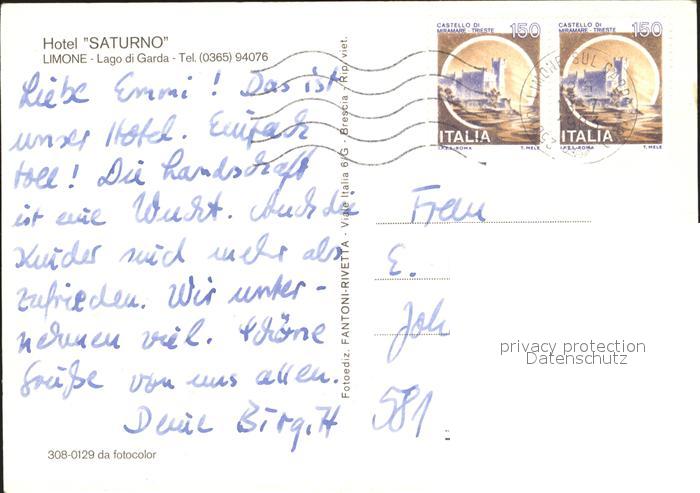 Hotel "SATURNO"
LIMONE - Lago di Garda - Tel. (0365) 94076
Liebe Emmi! Das ist
unser Hotel. Einfach
toll! Die Landschaft
ist eine Wucht. Auch die
Kinder sind mehr als
zufrieden. Wir unter-
nehmen viel. Schöne
Grüße von uns allen.
Deine Birgitt
308-0129 da fotocolor
Fotoediz. FANTONI-RIVETTA - Viale Italia 6/G - Brescia - Rip. viet.
CASTELLO DI
MIRAMARE - TRIESTE
150
ITALIA
I.P.Z.S.-ROMA T. MELE
CASTELLO DI
MIRAMARE - TRIESTE
150
ITALIA
I.P.Z.S.-ROMA T. MELE
LIMONE SUL GARDA
Frau
E.
Joh
581
privacy protection
Datenschutz